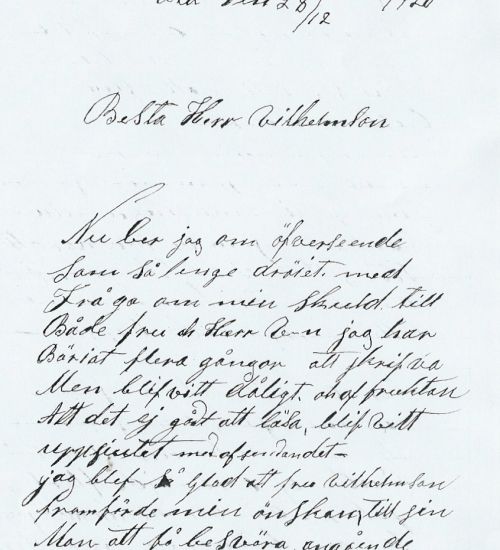 den 28/12 1920
Besta Herr Vilhelmson
Nu ber jag om öfverseende
som så lenge dröiet med
Fråga om min skuld till
Både fru ch Herr V-n jag har
Börjat flera gångor att skrifva
Men blifvitt dåligt, och af fruktan
Att det ej gådt att läsa, blifvitt
uppsjutet med afsendandet-
jag blef så Glad att fru Vilhelmson
framförde min önskan, till sin
Man att få besvära angående